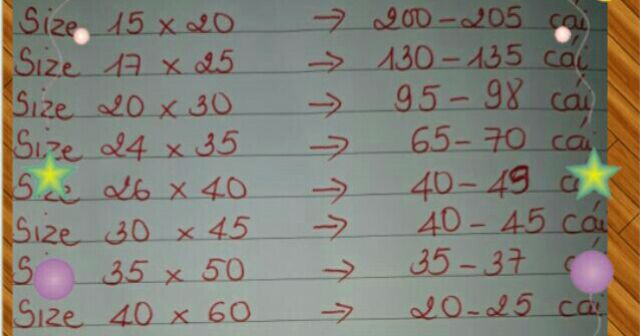 Size 15 x 20 → 200 - 205 cái
Size 17 x 25 → 130 - 135 cái
Size 20 x 30 → 95 - 98 cái
Size 24 x 35 → 65 - 70 cái
Size 26 x 40 → 40 - 49
Size 30 x 45 → 40 - 45 cái
35 x 50 → 35 - 37
Size 40 x 60 → 20 - 25 cái